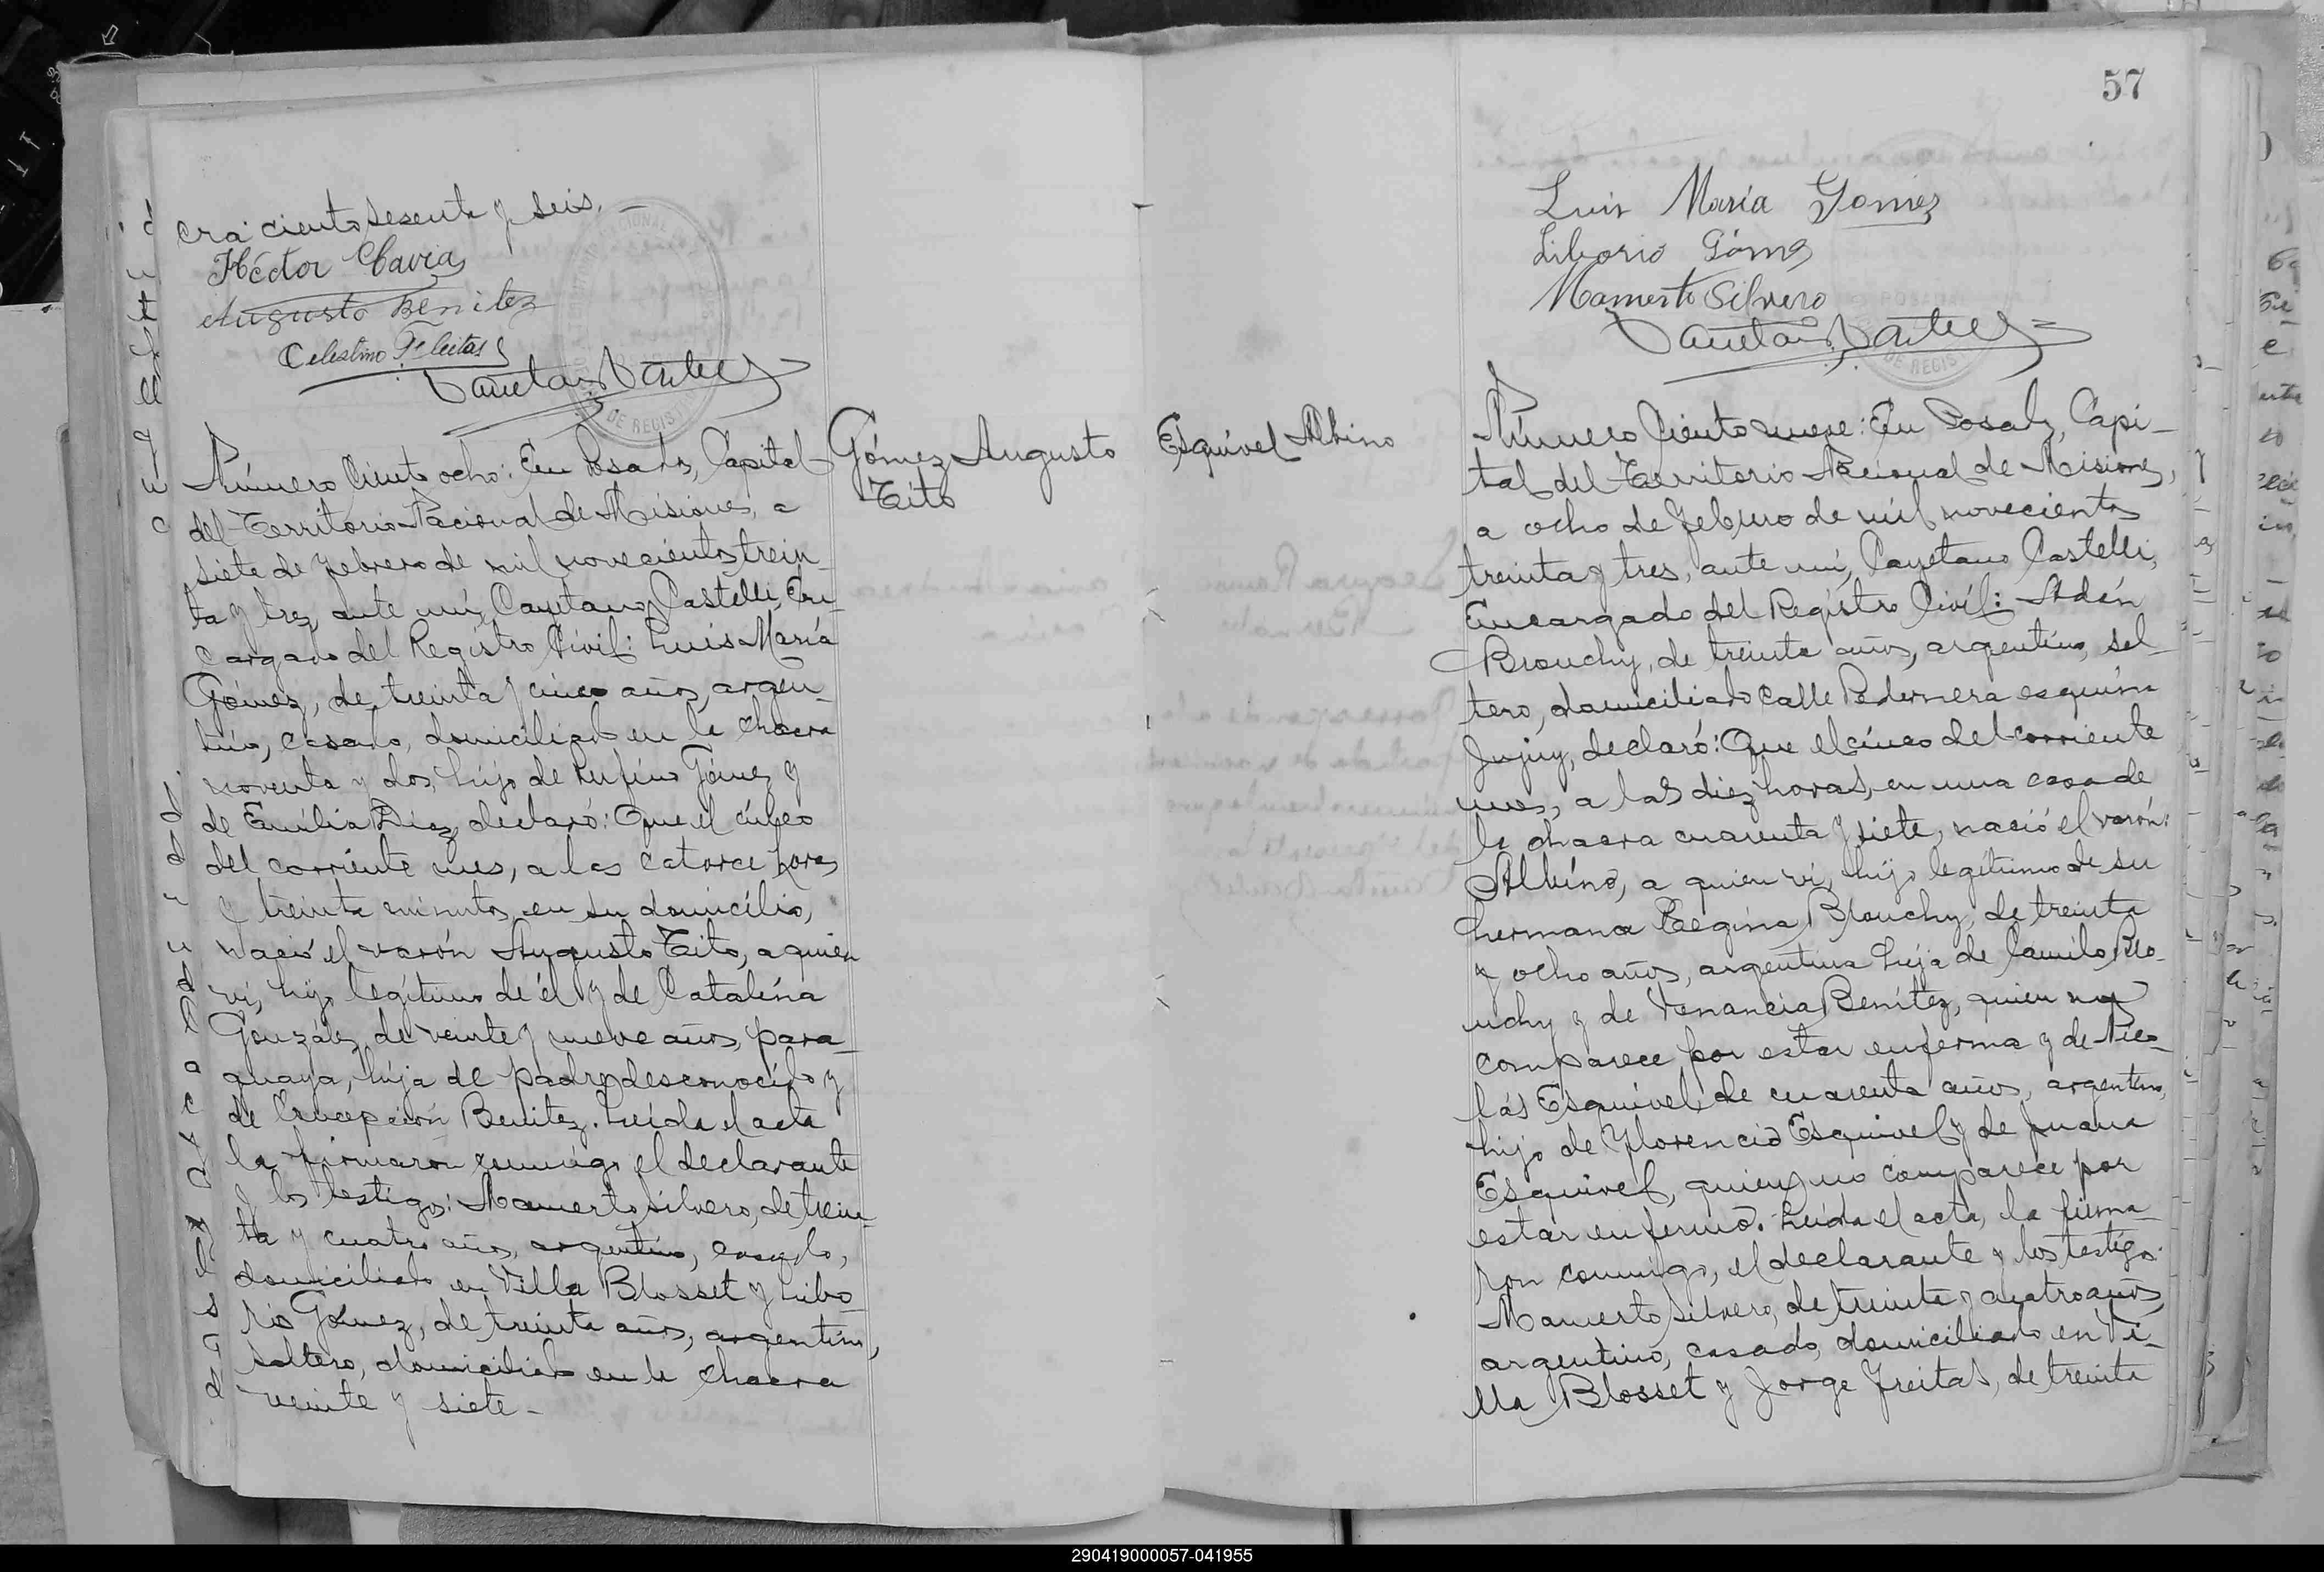 cra ciento sesenta y seis.
Héctor Chavia
Augusto Benitez
Celestino Fleitas
Cayetano Castelli
Número Ciento ocho: En Posadas, Capital
del Territorio Nacional de Misiones, a
siete de febrero de mil novecientos trein-
ta y tres, ante mí, Cayetano Castelli, En-
cargado del Registro Civil: Luis María
Gómez, de treinta y cinco años, argen-
tino, casado, domiciliado en la chacra
noventa y dos, hijo de Rufino Gómez y
de Emilia Diaz, declaró: Que el cinco
del corriente mes, a las catorce horas
y treinta minutos, en su domicilio,
nació el varón Augusto Tito, a quien
vi, hijo legítimo de él y de Catalina
González, de veinte y nueve años, para-
guaya, hija de padre desconocido y
de Concepción Benitez. Leída el acta
la firmaron conmigo el declarante
y los testigos: Mamerto Silvero, de trein-
ta y cuatro años, argentino, casado,
domiciliado en Villa Blosset y Libo-
rio Gómez, de treinta años, argentino,
soltero, domiciliado en la chacra
veinte y siete-
Gómez Augusto
Tito
57
Esquivel Albino
Luis María Gomez
Liborio Góme
Mamerto Silvero
Cayetano Castelli
Número Ciento nueve: En Posadas, Capi-
tal del Territorio Nacional de Misiones,
a ocho de febrero de mil novecientos
treinta y tres, ante mí, Cayetano Castelli,
Encargado del Registro Civil: Adán
Brouchy, de treinta años, argentino, sol-
tero, domiciliado calle Pedernera esquina
Jujuy, declaró: Que el cinco del corriente
mes, a las diez horas, en una casa de
la chacra cuarenta y siete, nació el varón:
Albino, a quien vi, hijo legítimo de su
hermana Regina Brouchy, de treinta
y ocho años, argentina hija de Camilo Bro-
uchy y de Venancia Benítez, quien no
comparece por estar enferma y de Nico-
lás Esquivel, de cuarenta años, argentino,
hijo de Florencio Esquivel y de Juana
Esquivel, quien no comparece por
estar enfermo. Leída el acta, la firma-
ron conmigo, el declarante y los testigos:
Mamerto Silvero, de treinta y cuatro años,
argentino, casado, domiciliado en Vi-
lla Blosset y Jorge Freitas, de treinta
290419000057-041955